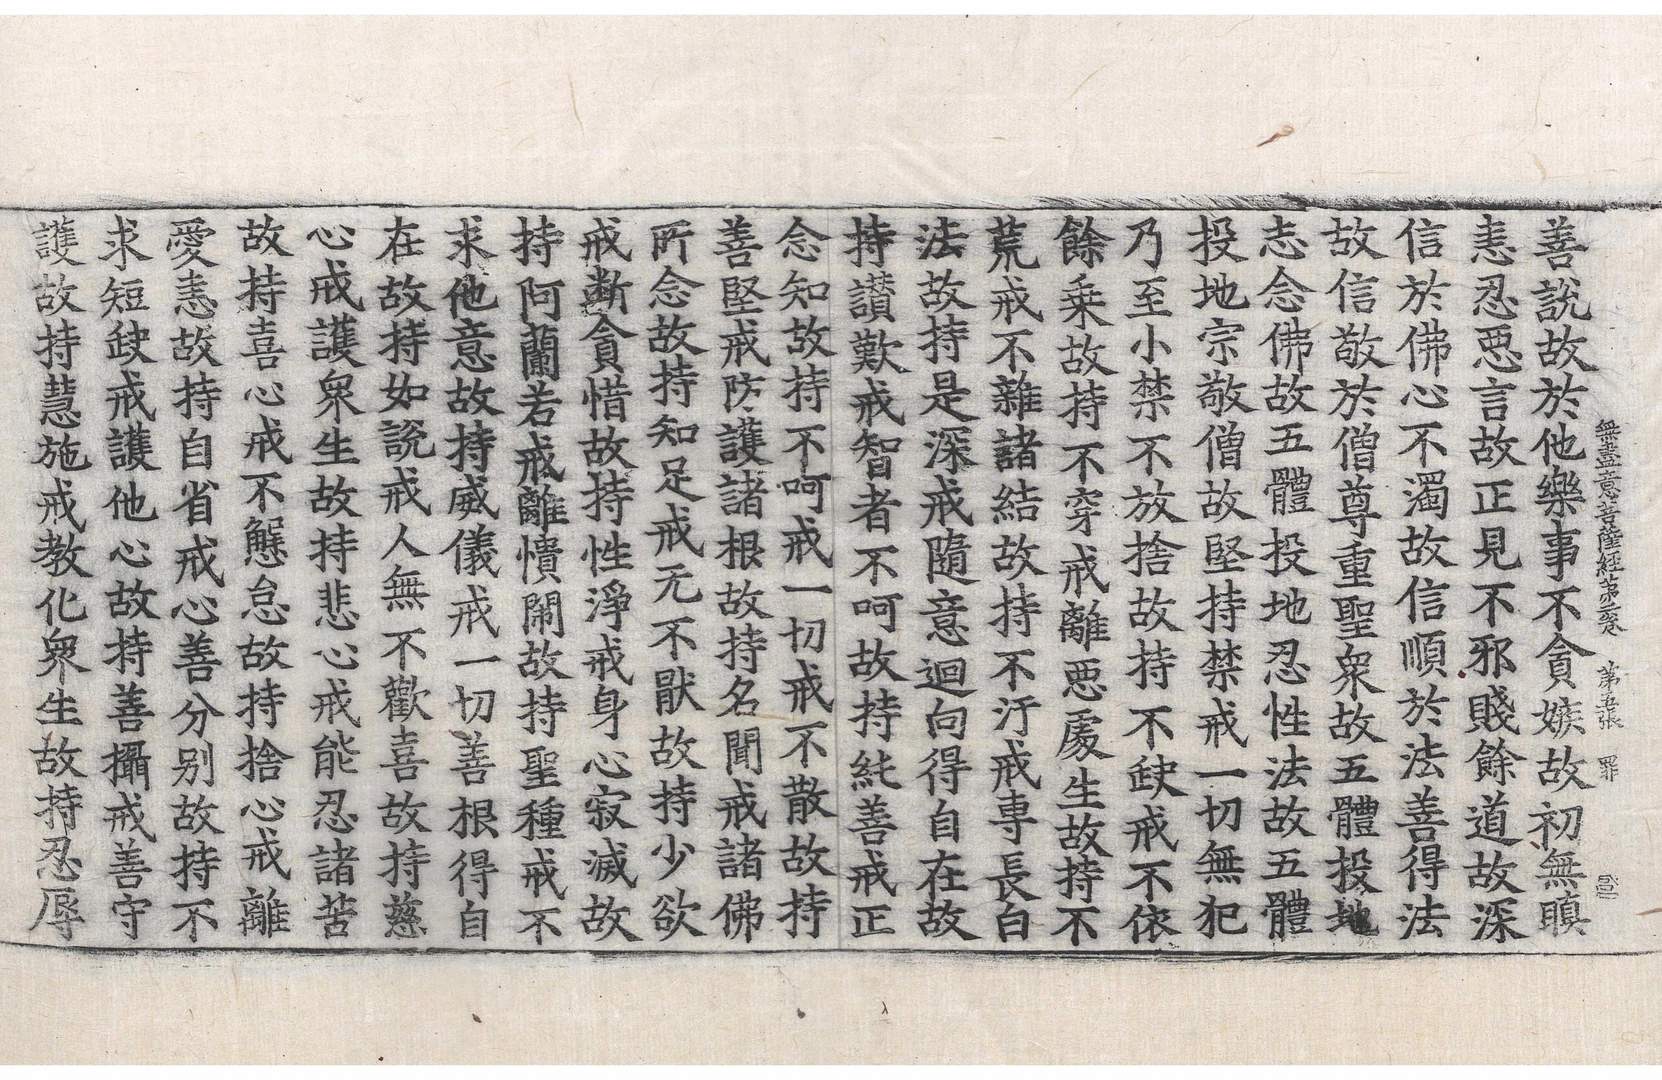 無盡意菩薩經第 卷 第五張 罪
善說故於他樂事不貪嫉故初無瞋
恚忍惡言故正見不邪賤餘道故深
信於佛心不濁故信順於法善得法
故信敬於僧尊重聖衆故五體投地
志念佛故五體投地忍性法故五體
投地宗敬僧故堅持禁戒一切無犯
乃至小禁不放捨故持不缺戒不依
餘乘故持不穿戒離惡處生故持不
荒戒不雜諸結故持不汙戒專長白
法故持是深戒隨意迴向得自在故
持讚歎戒智者不呵故持純善戒正
念知故持不呵戒一切戒不散故持
善堅戒防護諸根故持名聞戒諸佛
所念故持知足戒无不猒故持少欲
戒斷貪惜故持性淨戒身心寂滅故
持阿蘭若戒離憒閙故持聖種戒不
求他意故持威儀戒一切善根得自
在故持如說戒人無不歡喜故持慈
心戒護衆生故持悲心戒能忍諸苦
故持喜心戒不懈怠故持捨心戒離
愛恚故持自省戒心善分別故持不
求短缺戒護他心故持善攝戒善守
護故持慧施戒教化衆生故持忍辱